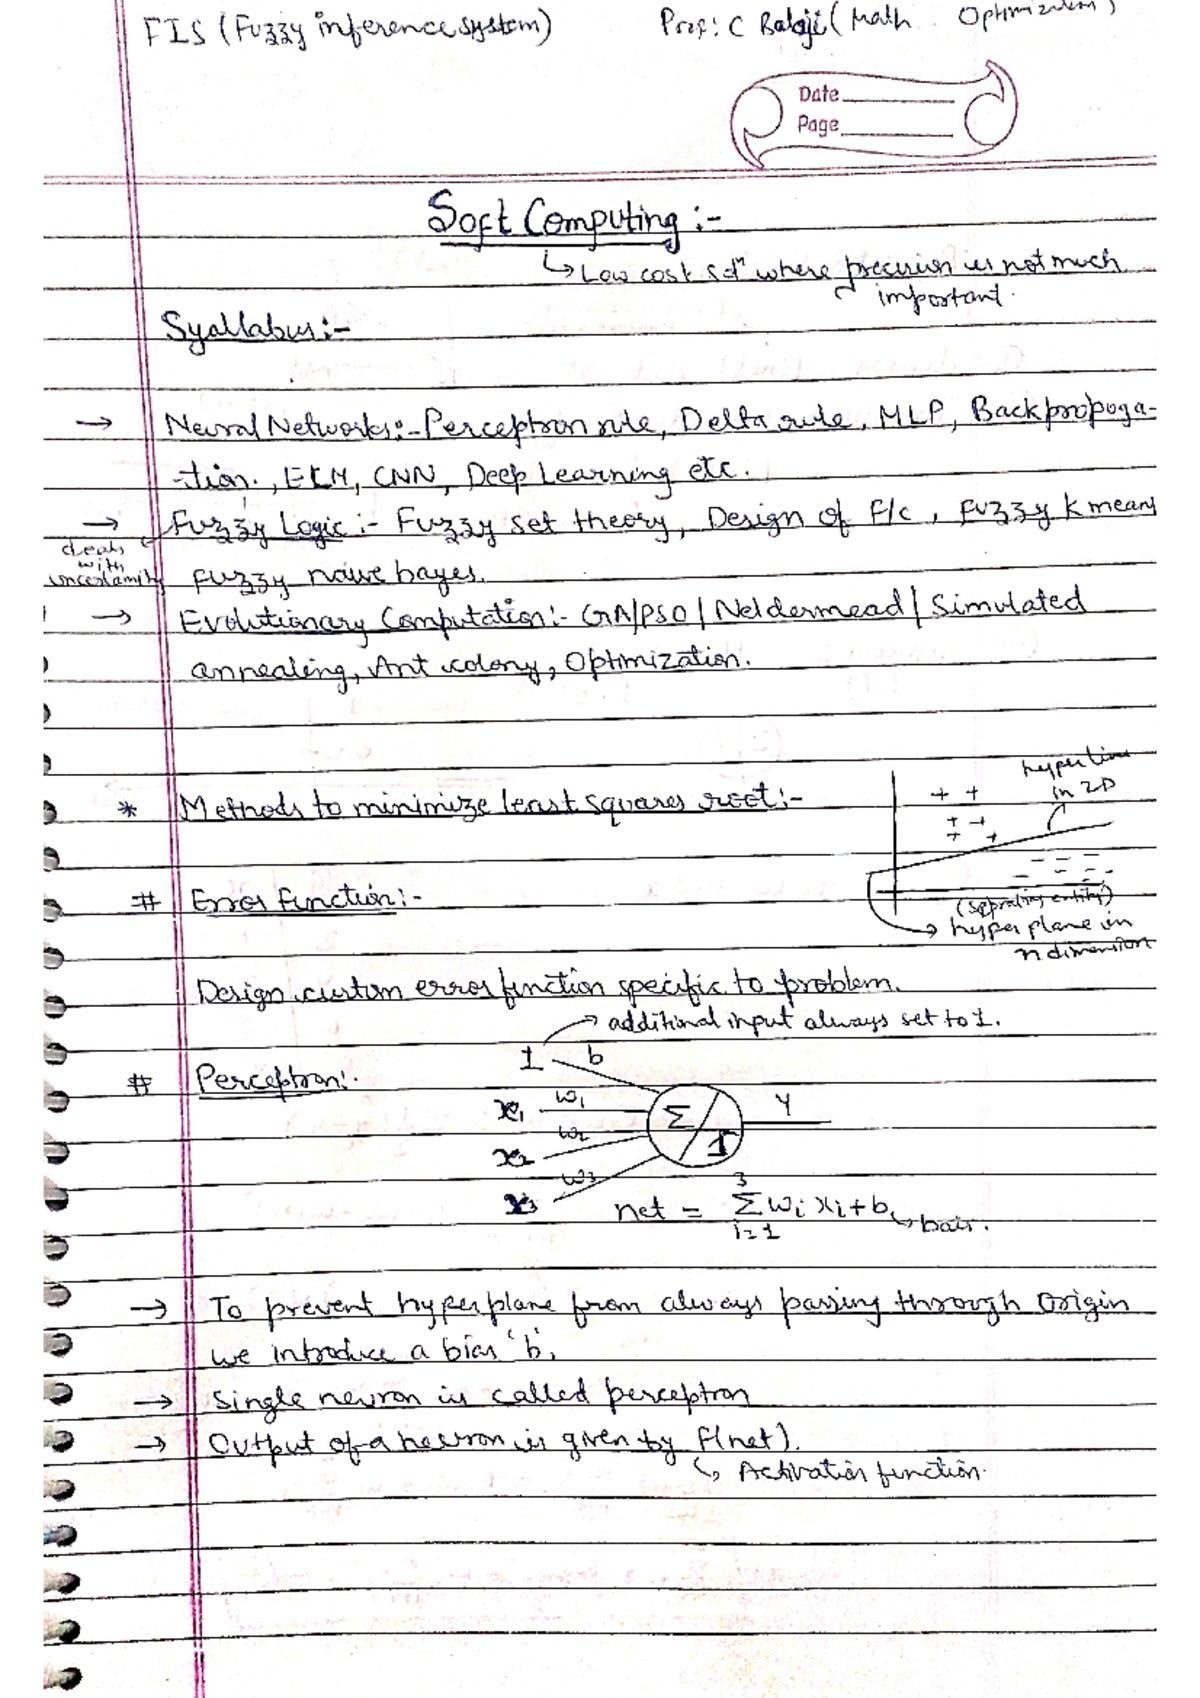 FIS (Fuzzy inference system)
Prof: C Balaji (Math Optimization)
Date
Page
Soft Computing :-
↳ Low cost solⁿ where precision is not much
important.
Syallabus :-
→ Neural Networks :- Perceptron rule, Delta rule, MLP, Backpropoga-
-tion., ELM, CNN, Deep Learning etc.
→ Fuzzy Logic :- Fuzzy set theory, Design of F/c, fuzzy k means
deals
with
uncertainity
fuzzy naive bayes.
→ Evolutionary Computation :- GA/PSO / Neldermead / Simulated
annealing, Ant colony, Optimization.
* Methods to minimize least squares root :-
hyper line
in 2D
+ +
+ +
+ +
(seprating entity)
→ hyperplane in
n dimension
# Error function :-
Design custom error function specific to problem.
→ additional input always set to 1.
# Perceptron :-
1 b
x₁ w₁
x₂ w₂
x₃ w₃
Σ
y
net = Σ wᵢ xᵢ + b
3
i=1
↳ bais.
→ To prevent hyperplane from always passing through origin
we introduce a bias 'b'.
→ Single neuron is called perceptron
→ Output of a neuron is given by f(net).
↳ Activation function.